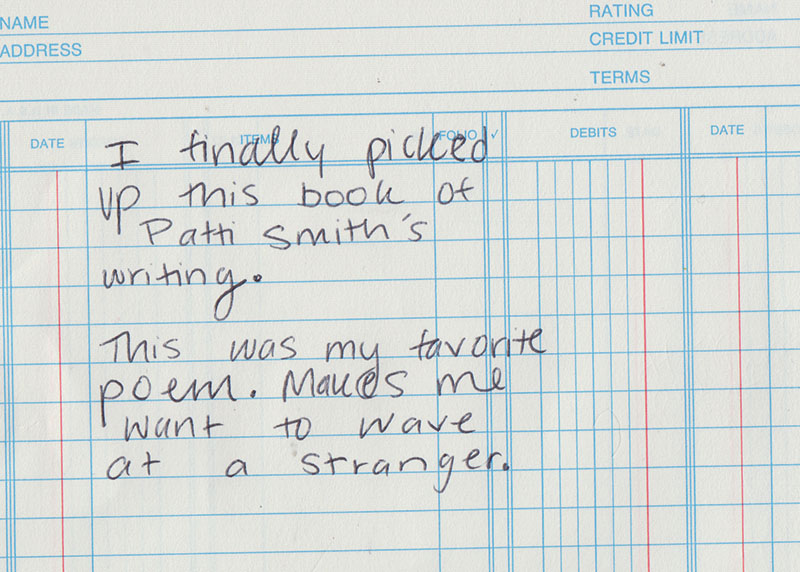 NAME
RATING
ADDRESS
CREDIT LIMIT
TERMS
DATE ITEMS FOLIO ✓ DEBITS DATE
I finally picked
up this book of
Patti Smith's
writing.
This was my favorite
poem. Makes me
want to wave
at a stranger.